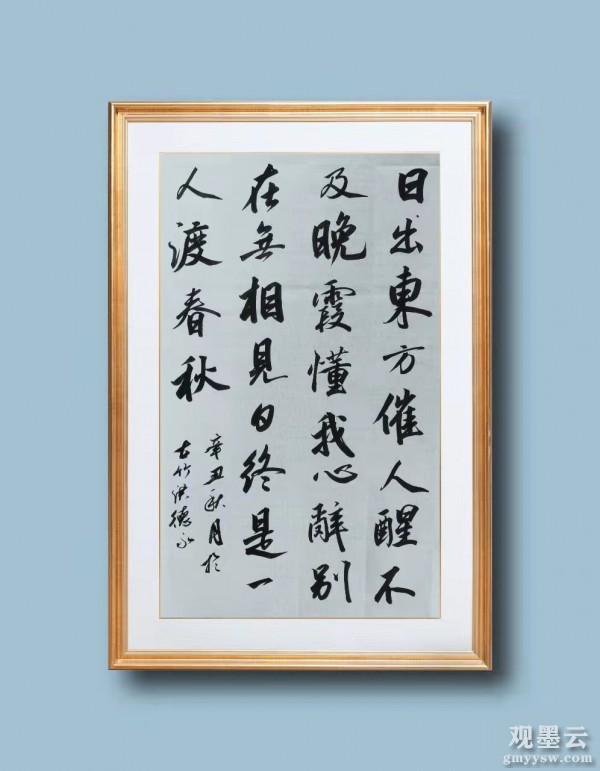 日出東方催人醒不
及晚霞懂我心辭別
在無相見日終是一
人渡春秋
辛丑秋月於
古竹洪德永
观墨云
gmyysw.com